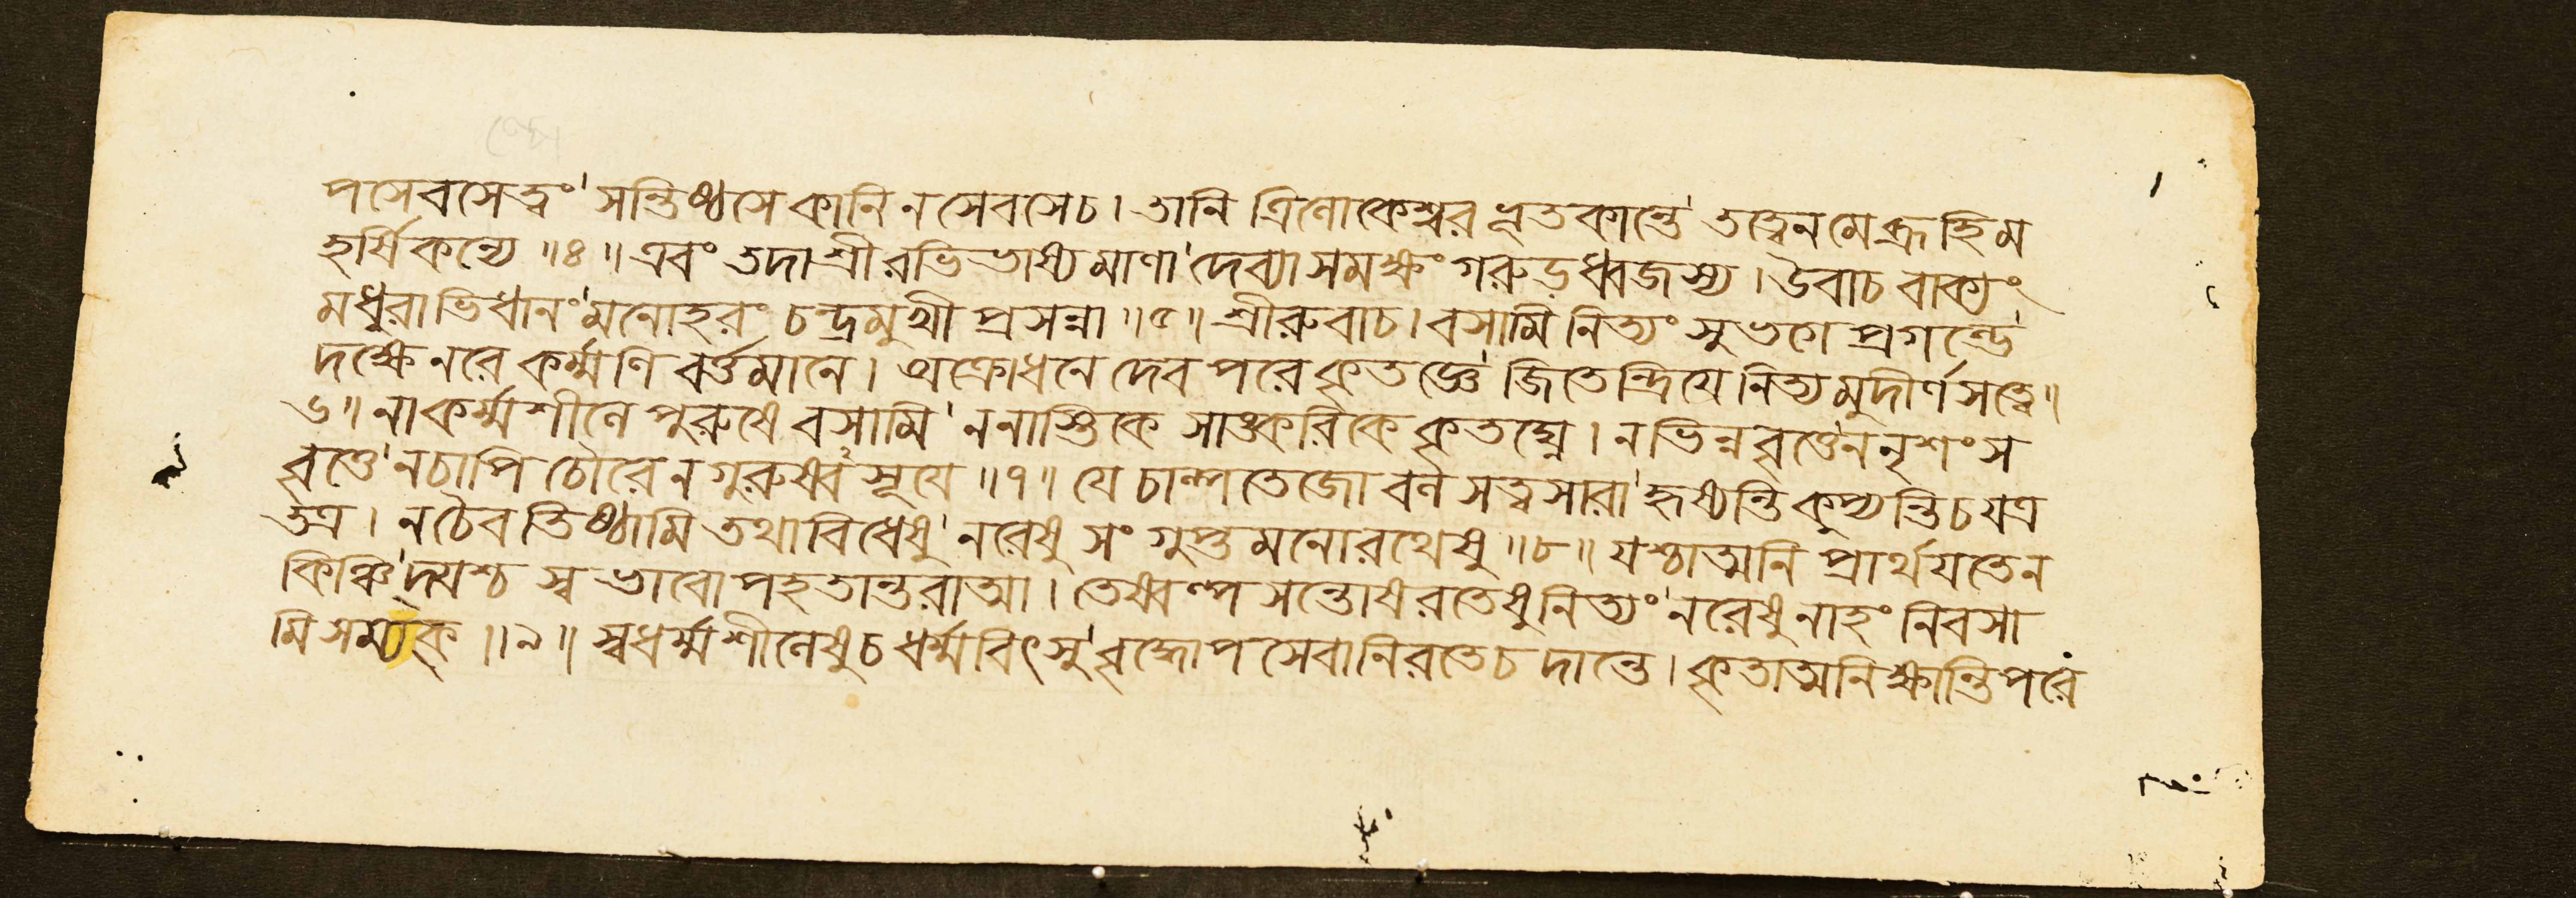 পসেবসেত্বং' সন্তিষ্ঠসে কানিনসেবসেচ। তানি ত্রিলোকেশ্বর ধৃতকান্তে' তত্ত্বেনমেব্রূহিম
হর্ষিকন্যে ॥৪॥ এবং তদা শ্রীরভিভাষ্যমাণা' দেব্যা সমক্ষং গরুড়ধ্বজস্য। উবাচ বাক্যং
মধুরাভিধানং' মনোহরং চন্দ্রমুখী প্রসন্না ॥৫॥ শ্রীরুবাচ। বসামি নিত্যং সুভগে প্রগল্ভে'
দক্ষেনরে কর্ম্মণি বর্ত্তমানে। অক্রোধনে দেবপরে কৃতজ্ঞে' জিতেন্দ্রিয়ে নিত্যমুদীর্ণসত্ত্বে॥
৬॥ নাকর্ম্মশীলে পুরুষে বসামি' ননাস্তিকে সাঙ্করিকে কৃতঘ্নে। নভিন্নবৃত্তেননৃশংস
বৃত্তে' নচাপি চৌরেন গুরুষ্বসূয়ে ॥৭॥ যে চাল্পতেজোবলসত্ত্বসারা' হৃষ্যন্তিকুপ্যন্তিচযত্র
তত্র। নচৈবতিষ্ঠামি তথাবিধেষু' নরেষু সংগুপ্তমনোরথেষু ॥৮॥ যশ্চাত্মনি প্রার্থয়তেন
কিঞ্চি'দ্যশ্চ স্বভাবোপহতান্তরাত্মা। তেষ্বল্পসন্তোষরতেষুনিত্যং' নরেষুনাহং নিবসা
মি সম্যক্ ॥৯॥ স্বধর্ম্মশীলেষুচধর্ম্মবিৎসু' বৃদ্ধোপসেবানিরতেচদান্তে। কৃতাত্মনিক্ষান্তিপরে